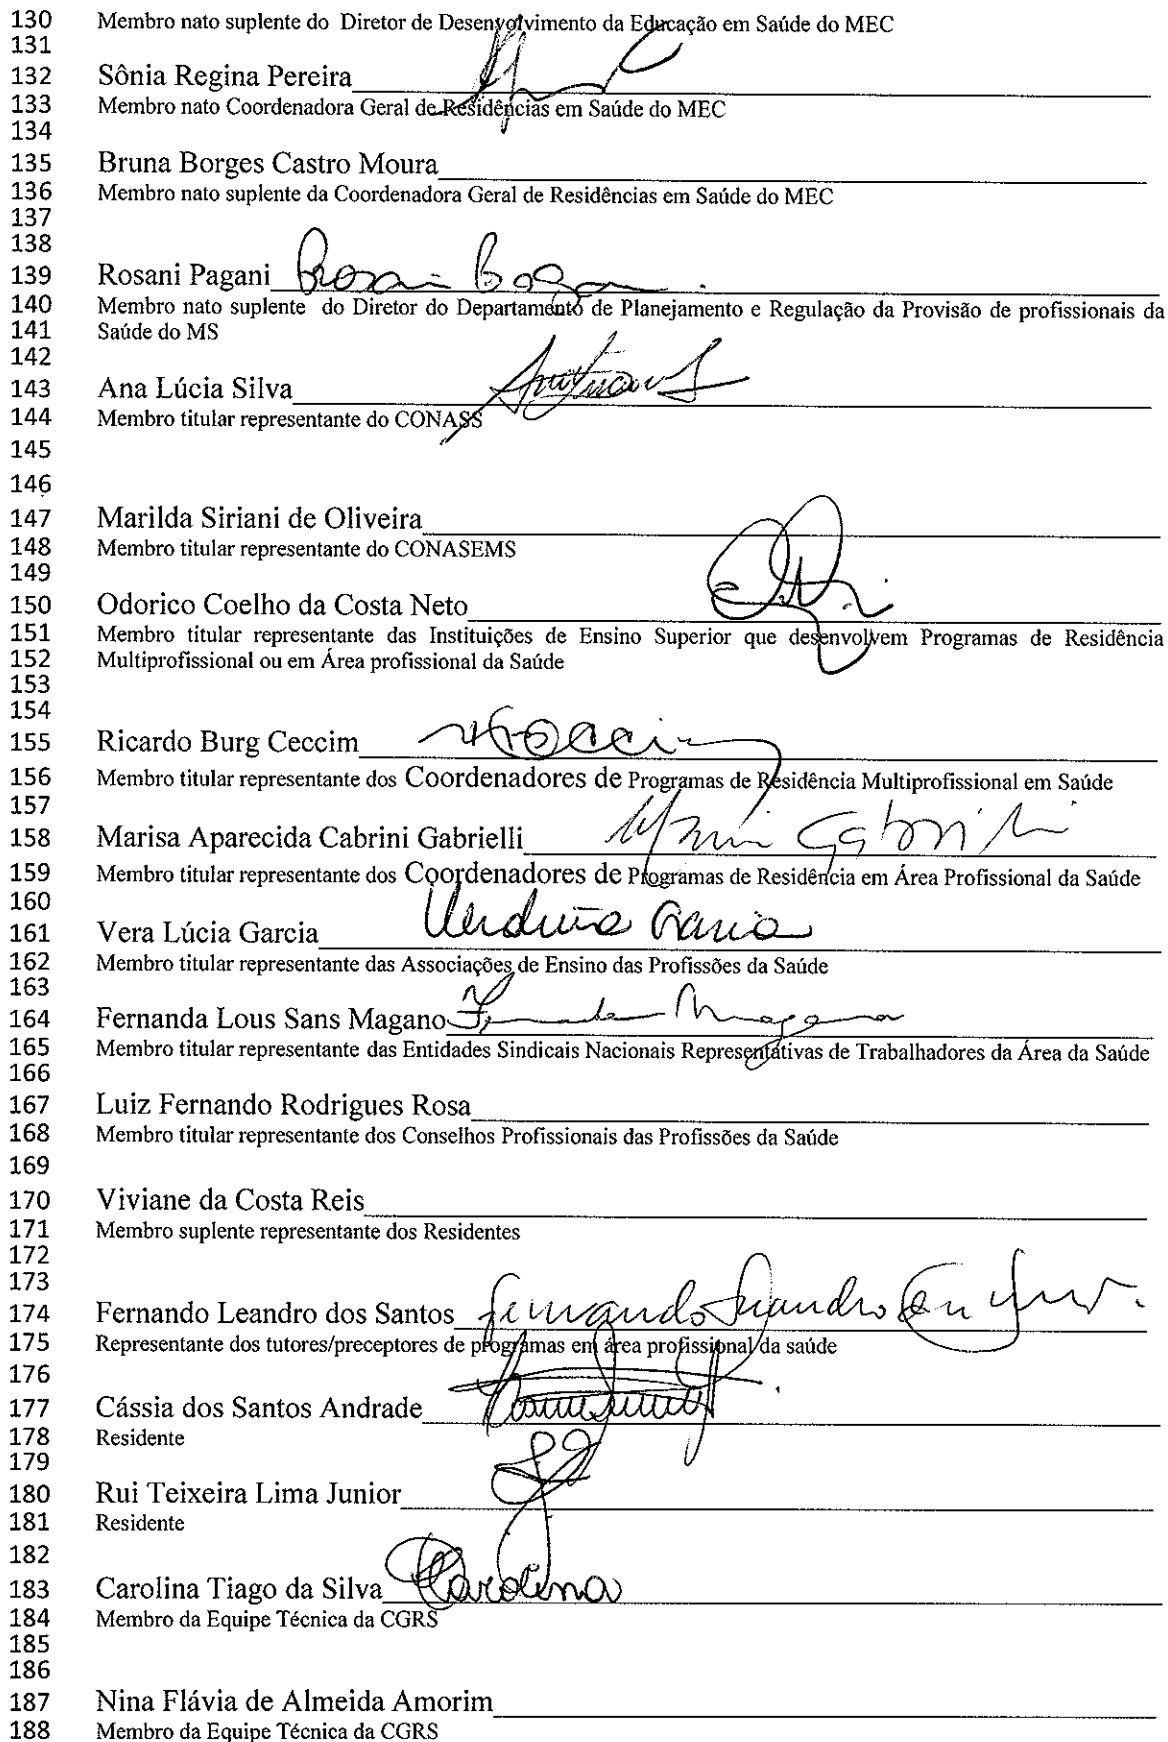 130 Membro nato suplente do Diretor de Desenvolvimento da Educação em Saúde do MEC
131
132 Sônia Regina Pereira
133 Membro nato Coordenadora Geral de Residências em Saúde do MEC
134
135 Bruna Borges Castro Moura
136 Membro nato suplente da Coordenadora Geral de Residências em Saúde do MEC
137
138
139 Rosani Pagani
140 Membro nato suplente do Diretor do Departamento de Planejamento e Regulação da Provisão de profissionais da
141 Saúde do MS
142
143 Ana Lúcia Silva
144 Membro titular representante do CONASS
145
146
147 Marilda Siriani de Oliveira
148 Membro titular representante do CONASEMS
149
150 Odorico Coelho da Costa Neto
151 Membro titular representante das Instituições de Ensino Superior que desenvolvem Programas de Residência
152 Multiprofissional ou em Área profissional da Saúde
153
154
155 Ricardo Burg Ceccim
156 Membro titular representante dos Coordenadores de Programas de Residência Multiprofissional em Saúde
157
158 Marisa Aparecida Cabrini Gabrielli
159 Membro titular representante dos Coordenadores de Programas de Residência em Área Profissional da Saúde
160
161 Vera Lúcia Garcia
162 Membro titular representante das Associações de Ensino das Profissões da Saúde
163
164 Fernanda Lous Sans Magano
165 Membro titular representante das Entidades Sindicais Nacionais Representativas de Trabalhadores da Área da Saúde
166
167 Luiz Fernando Rodrigues Rosa
168 Membro titular representante dos Conselhos Profissionais das Profissões da Saúde
169
170 Viviane da Costa Reis
171 Membro suplente representante dos Residentes
172
173
174 Fernando Leandro dos Santos
175 Representante dos tutores/preceptores de programas em área profissional da saúde
176
177 Cássia dos Santos Andrade
178 Residente
179
180 Rui Teixeira Lima Junior
181 Residente
182
183 Carolina Tiago da Silva Carolina
184 Membro da Equipe Técnica da CGRS
185
186
187 Nina Flávia de Almeida Amorim
188 Membro da Equipe Técnica da CGRS